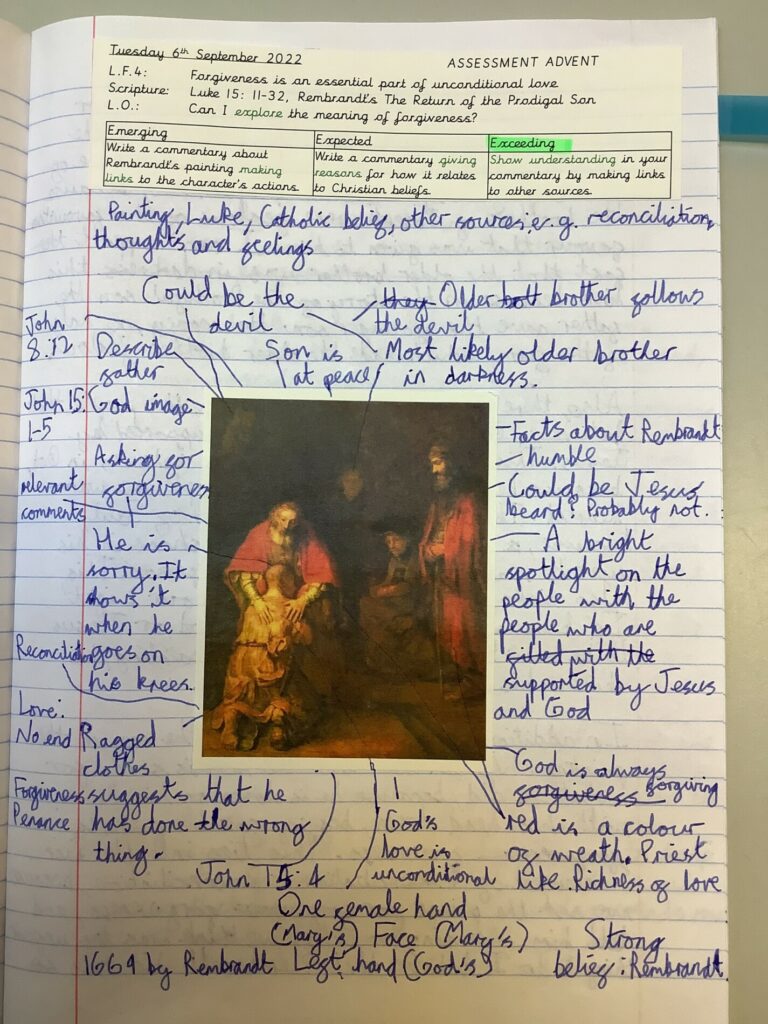 Tuesday 6th September 2022
ASSESSMENT ADVENT
L.F.4: Forgiveness is an essential part of unconditional love
Scripture: Luke 15: 11-32, Rembrandt's The Return of the Prodigal Son
L.O.: Can I explore the meaning of forgiveness?
Emerging
Write a commentary about
Rembrandt's painting making
links to the character's actions.
Expected
Write a commentary giving
reasons for how it relates
to Christian beliefs.
Exceeding
Show understanding in your
commentary by making links
to other sources.
Painting, Luke, Catholic belief, other sources, e.g. reconciliation,
thoughts and feelings
Could be the
devil
they Older bott brother follows
the devil
John
8:12
Describe
father
Son is
at peace
Most likely older brother
in darkness.
John 15:
1-5
God image
Asking for
forgiveness
relevant
comments
He is
sorry. It
shows it
when he
goes on
his knees.
Reconciliation
Love:
No end
Ragged
clothes
suggests that he
has done the wrong
thing.
Forgiveness
Penance
Facts about Rembrandt
humble
Could be Jesus
beard? Probably not.
A bright
spotlight on the
people with the
people who are
gifted with the
supported by Jesus
and God
God is always
forgiveness forgiving
red is a colour
of wreath. Priest
like. Richness of love
John 15:4
God's
love is
unconditional
One female hand
(Mary's) Face (Mary's)
Left hand (God's)
1669 by Rembrandt
Strong
belief: Rembrandt